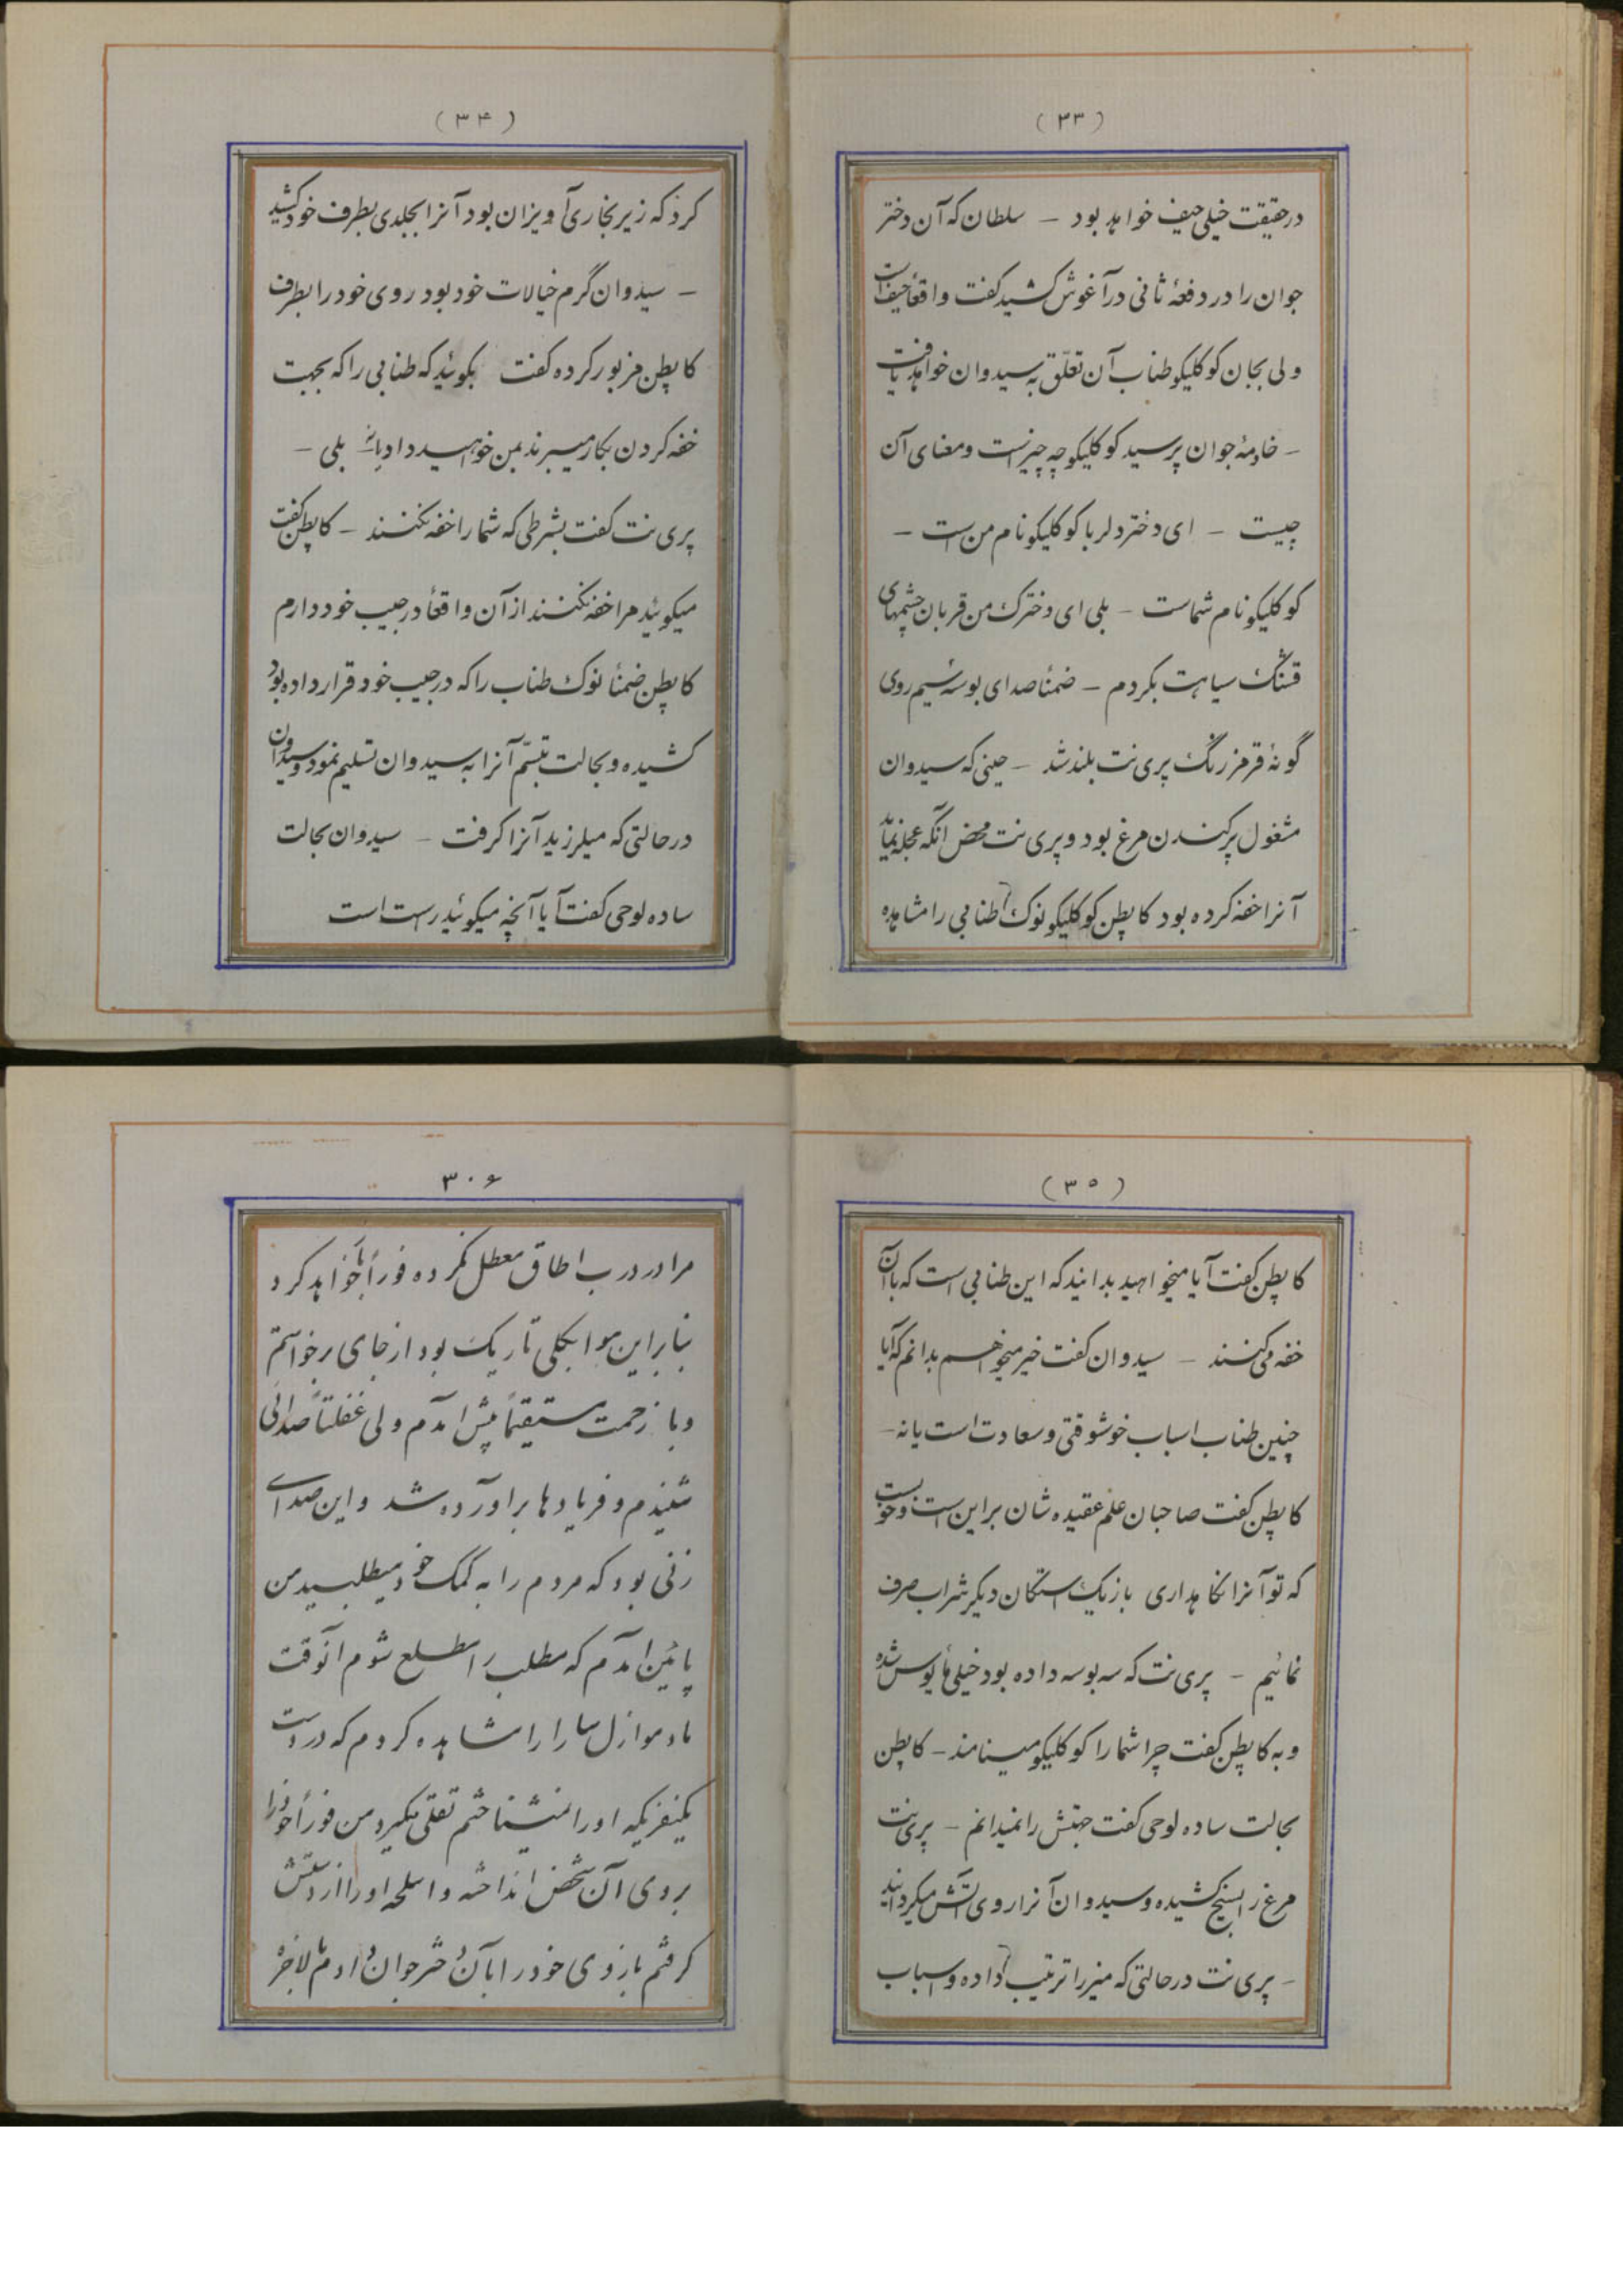 (۳۳)
درحقیقت خیلی حیف خواهد بود – سلطان که آن دختر
جوان را در دفعهٔ ثانی در آغوش کشید گفت واقعاً حیف است
ولی بجان کوکلیکو طناب آن تعلّق به سیدوان خواهد یافت
– خادمهٔ جوان پرسید کوکلیکو چه چیز است ومعنای آن
چیست – ای دختر دلربا کوکلیکو نام من است –
کوکلیکو نام شماست – بلی ای دخترک من قربان چشمهای
قشنگ سیاهت بگردم – ضمناً صدای بوسه سیم روی
گونهٔ قرمز رنگ پری نت بلند شد – حینی که سیدوان
مشغول پر کندن مرغ بود و پری نت محض انکه عجله نماید
آنرا خفه کرده بود کاپطن کوکلیکو نوک طنابی را مشاهده
(۳۴)
کرد که زیر بخاری آویزان بود آنرا بجلدی بطرف خود کشید
– سیدوان گرم خیالات خود بود روی خود را بطرف
کاپطن مزبور کرده گفت بگوئید که طنابی را که بجهت
خفه کردن بکار میبرند بمن خواهید داد یا نه بلی –
پری نت گفت بشرطی که شما را خفه نکنند – کاپطن گفت
میگوئید مرا خفه نکنند از آن واقعاً در جیب خود دارم
کاپطن ضمناً نوک طناب را که در جیب خود قرار داده بود
کشیده و بحالت تبسّم آنرا به سیدوان تسلیم نمود و سیدوان
درحالتی که میلرزید آنرا گرفت – سیدوان بحالت
ساده لوحی گفت آیا آنچه میگوئید راست است
(۳۵)
کاپطن گفت آیا میخواهید بدانید که این طنابی است که با آن
خفه می کنند – سیدوان گفت خیر میخواهم بدانم که آیا
چنین طناب اسباب خوشوقتی و سعادت است یا نه –
کاپطن گفت صاحبان علم عقیده شان بر این است و خوبست
که تو آنرا نگاهداری باز یک استکان دیگر شراب صرف
نمائیم – پری نت که سه بوسه داده بود خیلی مأیوس شده
و به کاپطن گفت چرا شما را کوکلیکو مینامند – کاپطن
بحالت ساده لوحی گفت جهتش را نمیدانم – پری نت
مرغ را بسیخ کشیده و سیدوان آنرا روی آتش میگردانید
– پری نت درحالتی که میز را ترتیب داده و اسباب
۳۰۶
مرا در درب اطاق معطل نکرده فوراً خواهد کرد
بنابراین هوا بکلی تاریک بود از جای برخواستم
و با زحمت مستقیماً پیش آمدم ولی غفلتاً صدائی
شنیدم و فریادها برآورده شد و این صدای
زنی بود که مردم را به کمک خود میطلبید من
پائین آمدم که مطلب را مطلع شوم آنوقت
مادموازل سارا را مشاهده کردم که در دست
یکنفریکه او را نمیشناختم تقلی میکرد من فوراً خود را
بروی آن شخص انداخته و اسلحه او را از دستش
گرفتم بازوی خود را بآن دختر جوان دادم بالاخره